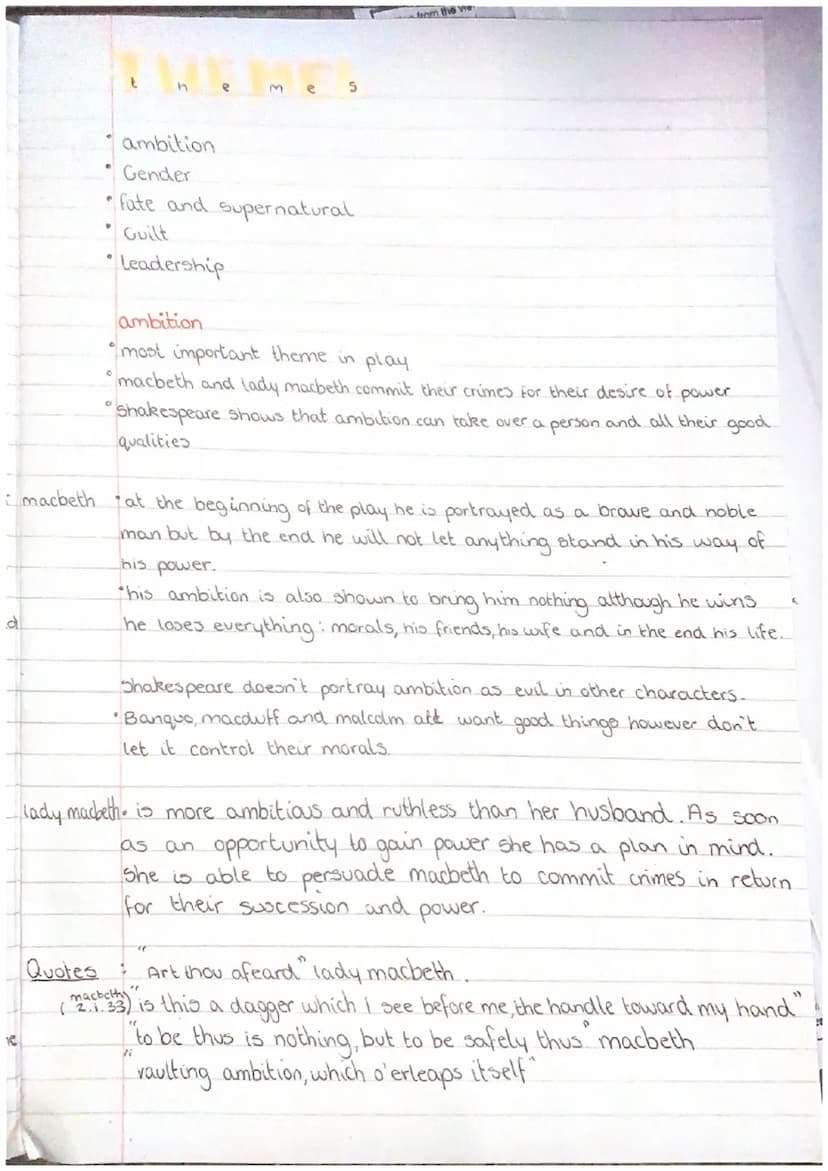 from the
THEMES
themes
• ambition
• Gender
• fate and supernatural
• Guilt
• leadership
ambition
• most important theme in play
• macbeth and lady macbeth commit their crimes for their desire of power
• Shakespeare shows that ambition can take over a person and all their good
qualities
: macbeth • at the beginning of the play he is portrayed as a brave and noble
man but by the end he will not let anything stand in his way of
his power.
• his ambition is also shown to bring him nothing although he wins
he loses everything: morals, his friends, his wife and in the end his life.
Shakespeare doesn't portray ambition as evil in other characters.
• Banquo, macduff and malcolm all want good things however don't
let it control their morals.
lady macbeth • is more ambitious and ruthless than her husband. As soon
as an opportunity to gain power she has a plan in mind.
She is able to persuade macbeth to commit crimes in return
for their suscession and power.
Quotes : "Art thou afeard" lady macbeth.
(macbeth 2.1.33) "is this a dagger which I see before me, the handle toward my hand"
"to be thus is nothing, but to be safely thus" macbeth
"vaulting ambition, which o'erleaps itself"